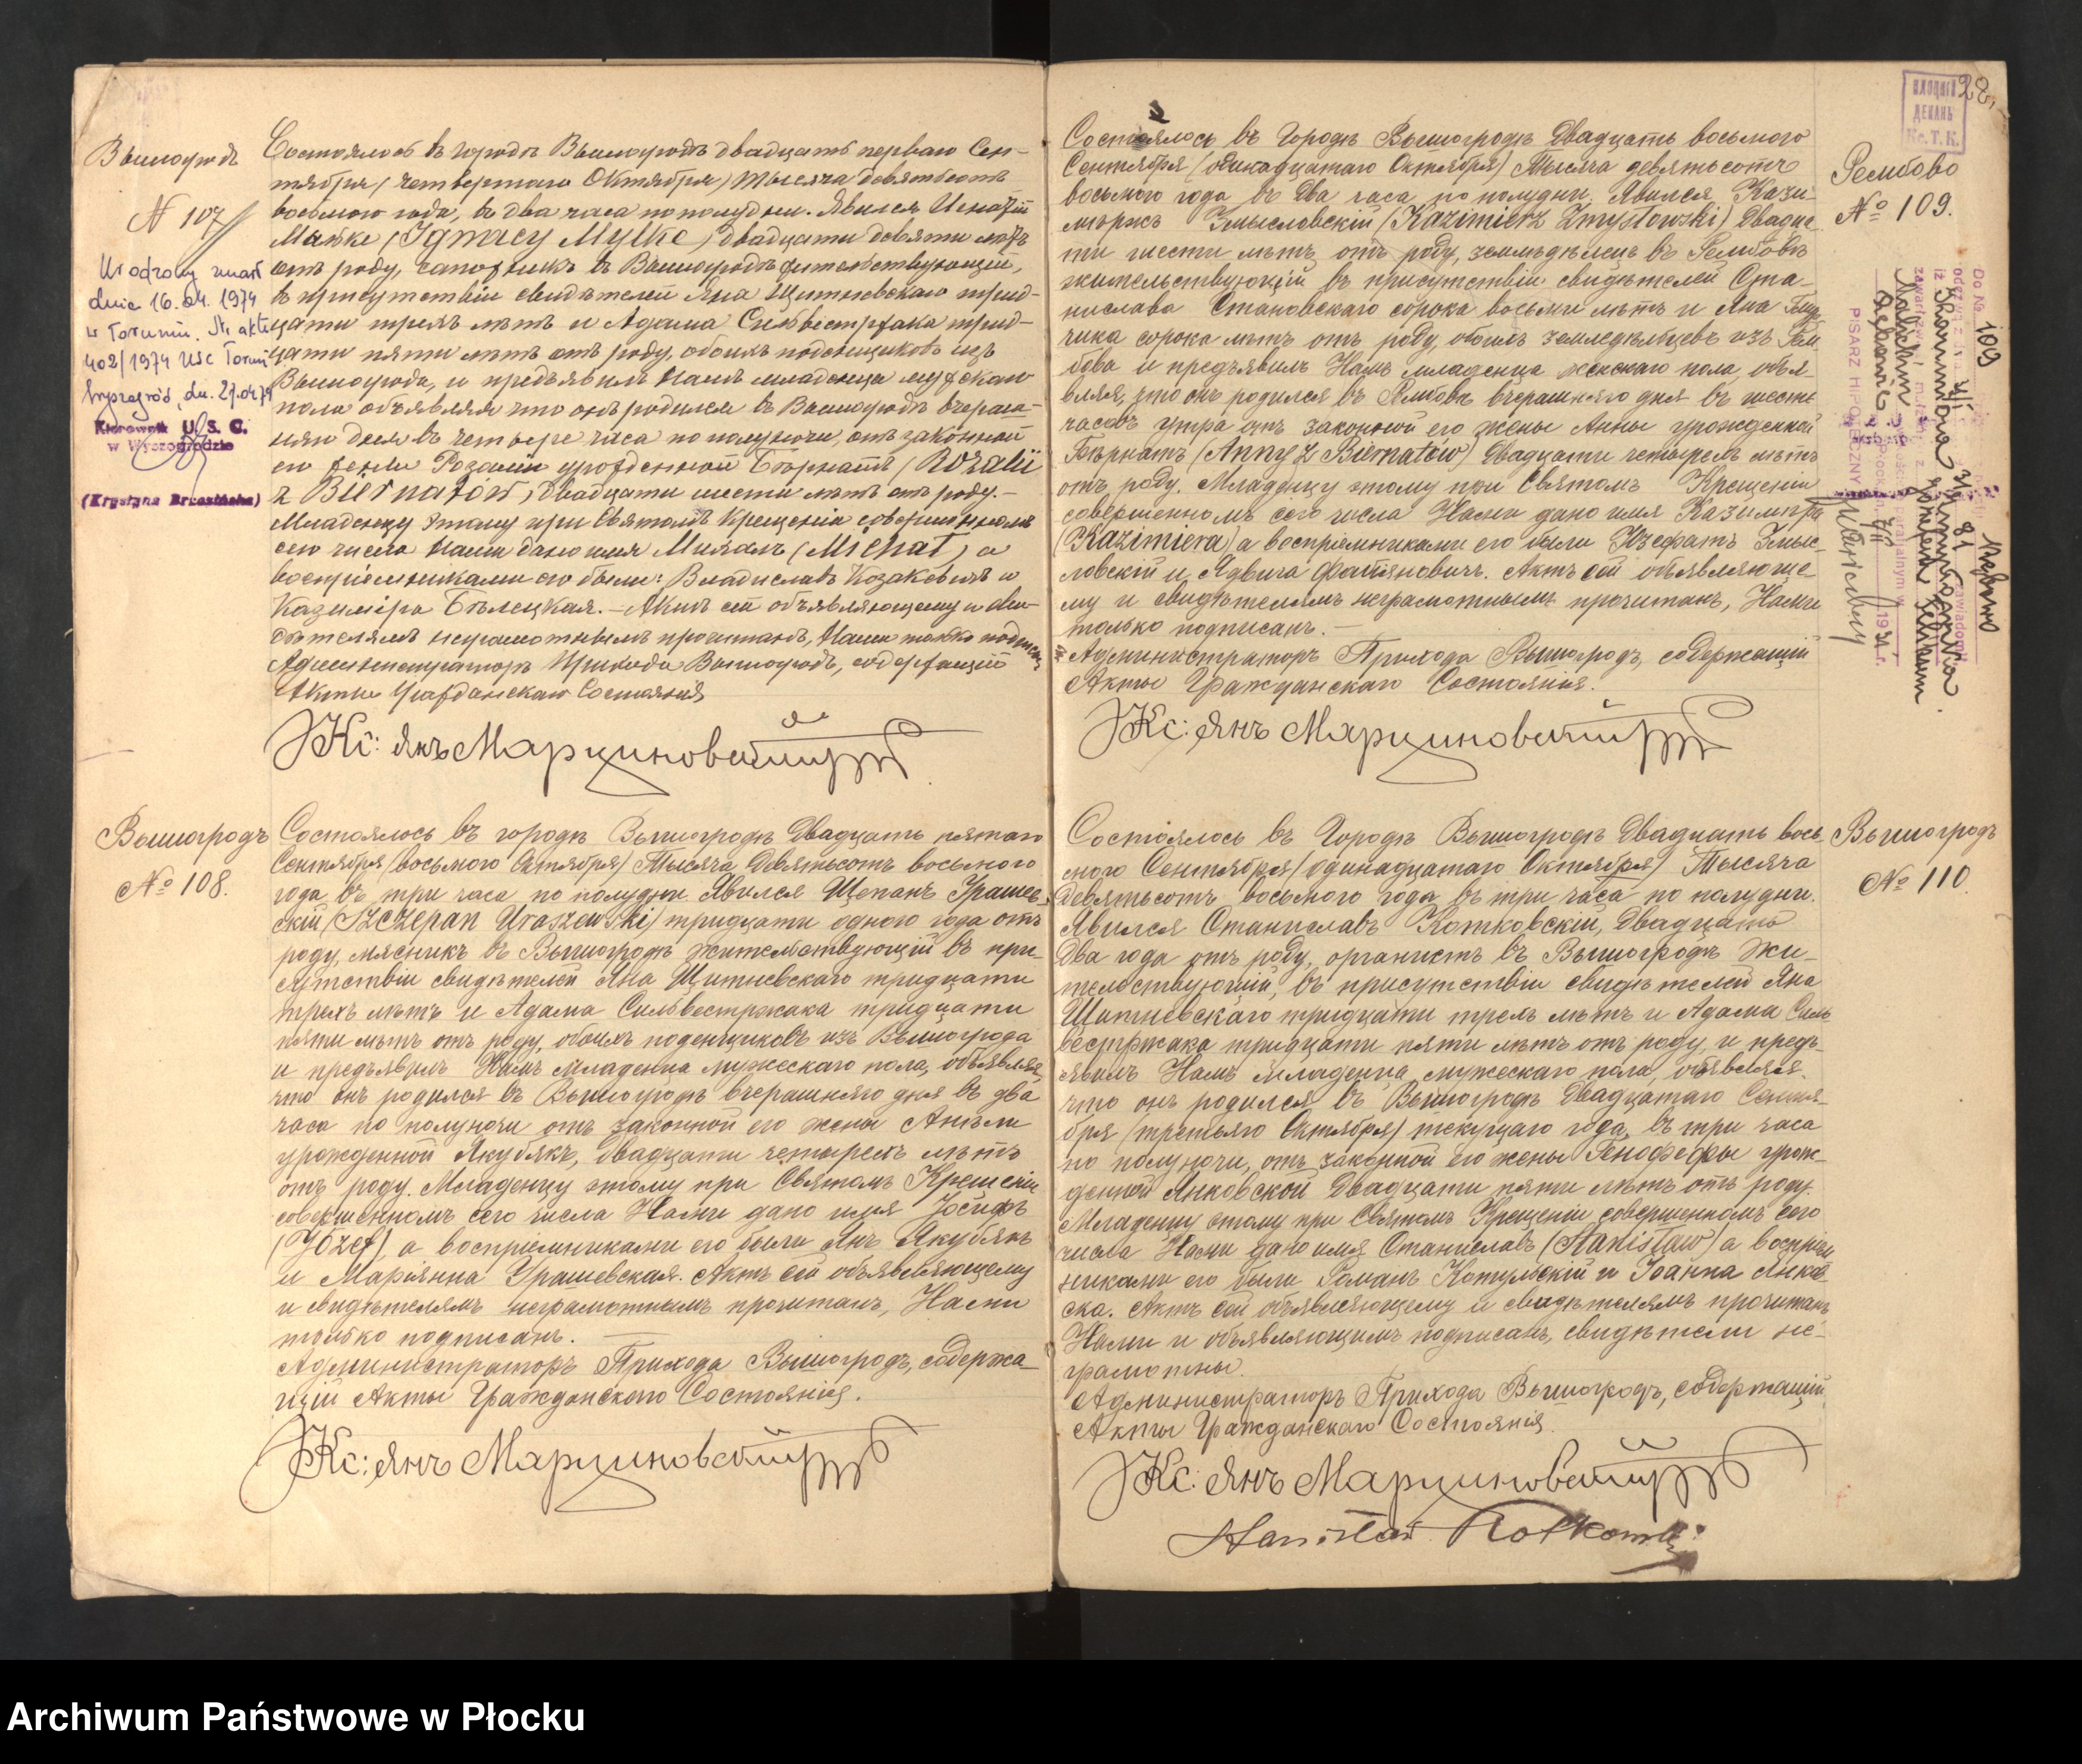 Вышогродъ
N 107
Urodzony zmarł
dnia 16.04. 1974
w Toruniu. Nr aktu
402/1974 USC Toruń
Wyszogród, dn. 27.04.74
Kierownik U. S. C.
w Wyszogrodzie
(Krystyna Brzezińska)
Состоялось въ городѣ Вышогродѣ двадцать перваго Сен-
тября (четвертаго Октября) тысяча девятьсотъ
восьмого года, въ два часа по полудни. Явился Игнатій
Мылке (Ignacy Mylke) двадцати девяти лѣтъ
отъ роду, сапожникъ въ Вышогродѣ жительствующій,
въ присутствіи свидѣтелей Яна Щитневскаго трид-
цати трехъ лѣтъ и Адама Сильвестржака трид-
цати пяти лѣтъ отъ роду, обоихъ поденщиковъ изъ
Вышогрода, и предъявилъ Намъ младенца мужскаго
пола объявляя что онъ родился въ Вышогродѣ вчераш-
няго дня въ четыре часа по полуночи, отъ законной
его жены Розаліи урожденной Бѣрнатъ (Rozalii
z Biernatów) двадцати шести лѣтъ отъ роду.-
Младенцу этому при Святомъ Крещеніи совершенномъ
сего числа Нами дано имя Михалъ (Michał) а
воспріемниками его были: Владиславъ Козакевичъ и
Казиміра Бѣлецкая.- Актъ сей объявляющему и сви-
дѣтелямъ неграмотнымъ прочитанъ, Нами только подписанъ
Администраторъ Прихода Вышогродъ, содержащій
Акты Гражданскаго Состоянія
Кс: Янъ Марциновскій
Вышогродъ
№ 108.
Состоялось въ городѣ Вышогродѣ двадцать пятаго
Сентября (восьмого Октября) Тысяча девятьсотъ восьмого
года въ три часа по полудни. Явился Щепанъ Урашев-
скій (Szczepan Uraszewski) тридцати одного года отъ
роду, мясникъ въ Вышогродѣ жительствующій въ при-
сутствіи свидѣтелей Яна Щитневскаго тридцати
трехъ лѣтъ и Адама Сильвестржака тридцати
пяти лѣтъ отъ роду, обоихъ поденщиковъ изъ Вышогрода
и предъявилъ Намъ младенца мужескаго пола, объявляя,
что онъ родился въ Вышогродѣ вчерашняго дня въ два
часа по полуночи отъ законной его жены Анѣли
урожденной Якубякъ, двадцати четырехъ лѣтъ
отъ роду. Младенцу этому при Святомъ Крещеніи
совершенномъ сего числа Нами дано имя Іосифъ
(Józef), а воспріемниками его были Янъ Якубякъ
и Маріянна Урашевская. Актъ сей объявляющему
и свидѣтелямъ неграмотнымъ прочитанъ, Нами
только подписанъ.
Администраторъ Прихода Вышогродъ, содержа-
щій Акты Гражданскаго Состоянія.
Кс: Янъ Марциновскій
28.
ПЛОЦКІЙ
ДЕКАНЪ
Кс. Т. К.
Рембово
№ 109.
Состоялось въ Городѣ Вышогродѣ Двадцать восьмого
Сентября (одинадцатаго Октября) Тысяча девятьсотъ
восьмого года въ два часа по полудни. Явился Кази-
мѣржъ Змысловскій (Kazimierz Zmysłowski) двадца-
ти шести лѣтъ отъ роду, земледѣлецъ въ Рембовѣ
жительствующій въ присутствіи свидѣтелей Ста-
нислава Становскаго сорока восьми лѣтъ и Яна
чика сорока лѣтъ отъ роду, обоихъ земледѣльцевъ изъ Рем-
бова и предъявилъ Намъ младенца женскаго пола, объя-
вляя, что онъ родился въ Рембовѣ вчерашняго дня въ шесть
часовъ утра отъ законной его жены Анны урожденной
Бѣрнатъ (Anny z Biernatów) двадцати четырехъ лѣтъ
отъ роду. Младенцу этому при Святомъ Крещеніи
совершенномъ сего числа Нами дано имя Казиміра
(Kazimiera) а воспріемниками его были Юзефатъ Змыс-
ловскій и Ядвига Фабіяновичъ. Актъ сей объявляюще-
му и свидѣтелямъ неграмотнымъ прочитанъ, Нами
только подписанъ.
Администраторъ Прихода Вышогродъ, содержащій
Акты Гражданскаго Состоянія.
Кс: Янъ Марциновскій
Do № 109
PISARZ HIPOTECZNY
Вышогродъ
№ 110
Состоялось въ Городѣ Вышогродѣ Двадцать вось-
мого Сентября (одинадцатаго Октября) Тысяча
девятьсотъ восьмого года въ три часа по полудни.
Явился Станиславъ Котковскій, Двадцать
два года отъ роду, органистъ въ Вышогродѣ жи-
тельствующій, въ присутствіи свидѣтелей Яна
Щитневскаго тридцати трехъ лѣтъ и Адама Силь-
вестржака тридцати пяти лѣтъ отъ роду, и предъ-
явилъ Намъ младенца мужескаго пола, объявляя
что онъ родился въ Вышогродѣ Двадцатаго Сентя-
бря (третьяго Октября) текущаго года, въ три часа
по полуночи, отъ законной его жены Генофефы урож-
денной Янковской Двадцати пяти лѣтъ отъ роду.
Младенцу этому при Святомъ Крещеніи совершенномъ сего
числа Нами дано имя Станиславъ (Stanisław) а воспріем-
никами его были Романъ Котульскій и Іоанна Янков-
ска. Актъ сей объявляющему и свидѣтелямъ прочитанъ
Нами и объявляющимъ подписанъ, свидѣтели не-
грамотны.
Администраторъ Прихода Вышогродъ, содержащій
Акты Гражданскаго Состоянія.
Кс: Янъ Марциновскій
Stanisław Kotkowski
Archiwum Państwowe w Płocku